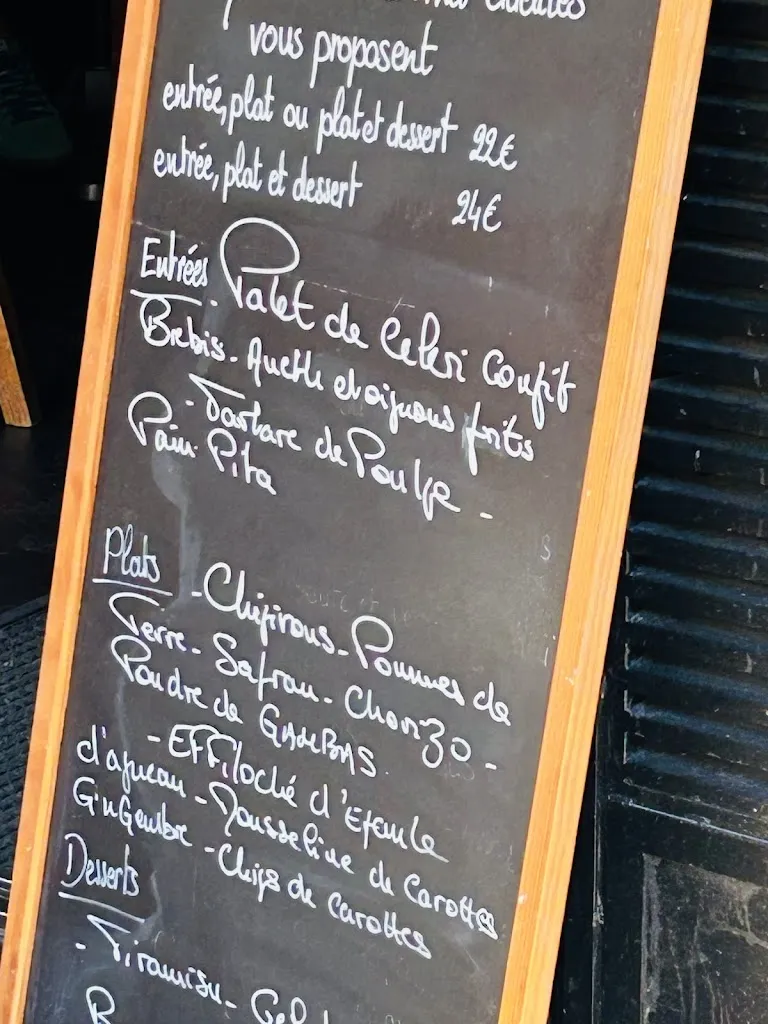 vous proposent
entrée, plat ou plat et dessert 22€
entrée, plat et dessert 24€
Entrées. Palet de Céleri Confit
Brebis - Aneth et oignons frits
- Tartare de Poulpe -
Pain Pita
Plats - Chipirons - Pommes de
Terre - Safran - Chorizo -
Poudre de GAMBAS
- EFFiloché d'Epaule
d'agneau - Mousseline de Carottes
GinGembre - Chips de Carottes
Desserts
- Tiramisu -